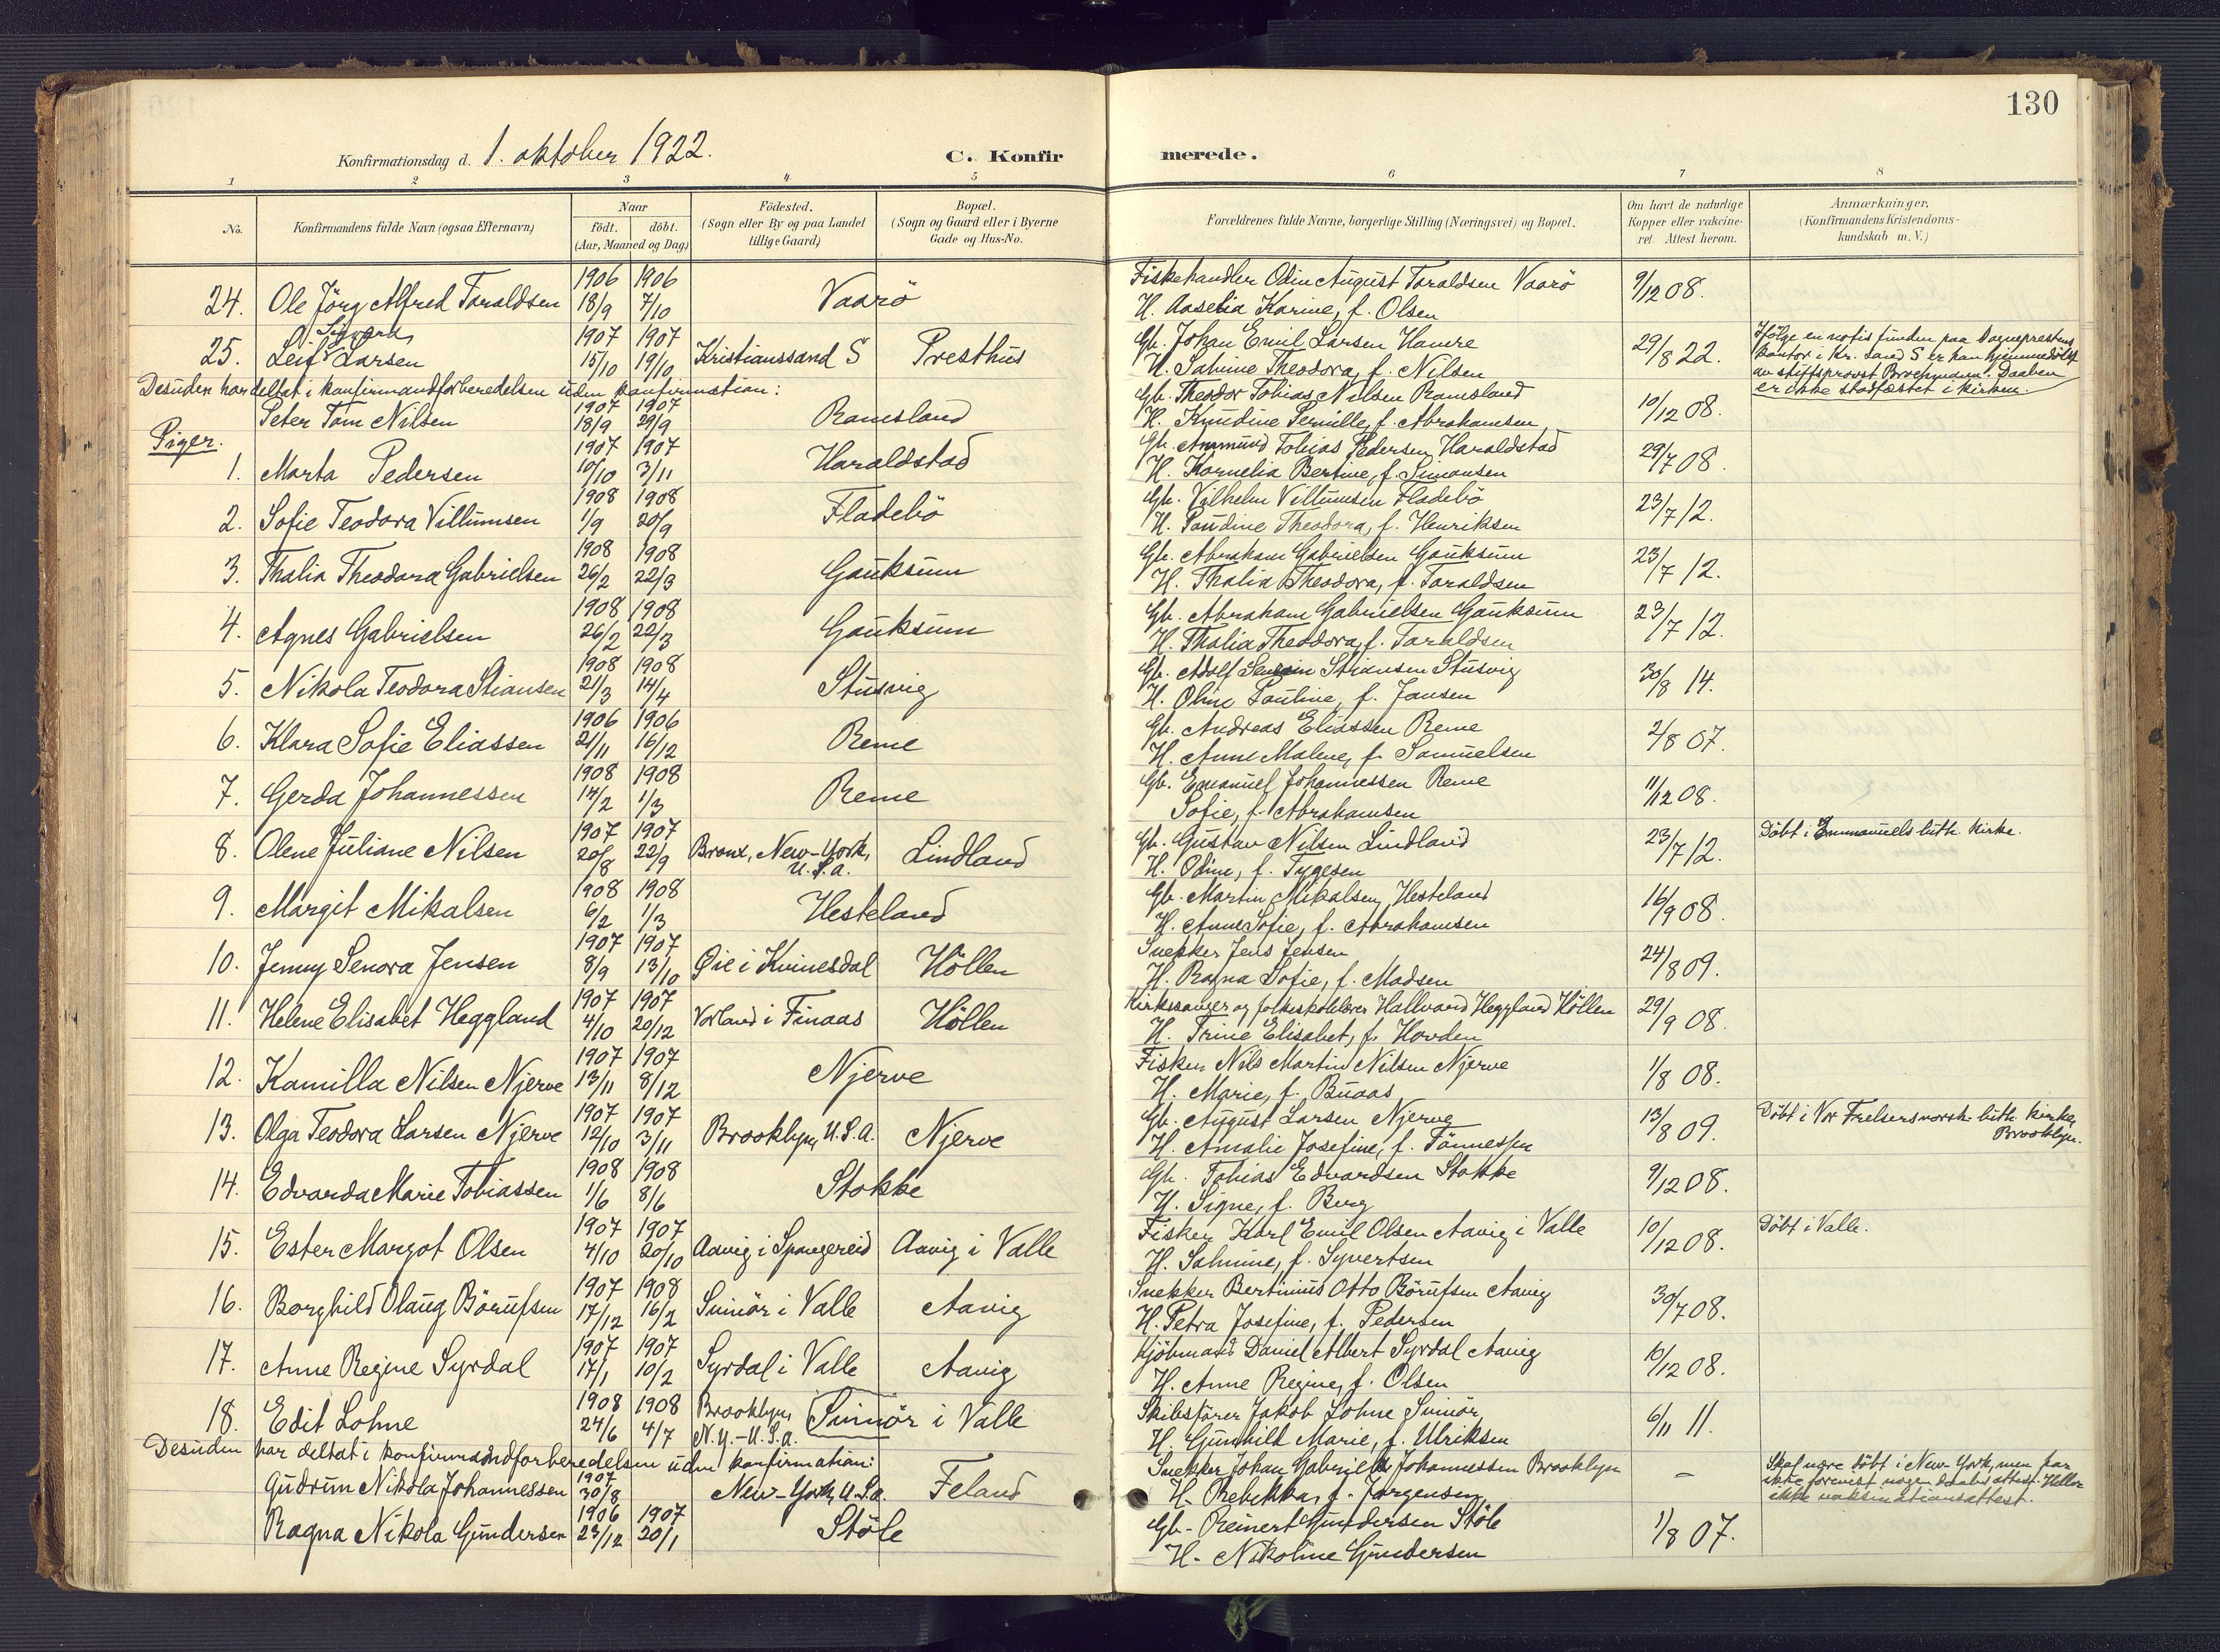 130
Konfirmationsdag d. 1. oktober 1922.
C. Konfirmerede.
1 2 3 4 5 6 7 8
No.
Konfirmandens fulde Navn (ogsaa Efternavn)
Naar
födt. döbt.
(Aar, Maaned og Dag)
Födested.
(Sogn eller By og paa Landet
tillige Gaard)
Bopæl.
(Sogn og Gaard eller i Byerne
Gade og Hus-No.
Forældrenes fulde Navne, borgerlige Stilling (Næringsvei) og Bopæl.
Om havt de naturlige
Kopper eller vakcine-
ret. Attest herom.
Anmærkninger.
(Konfirmandens Kristendoms-
kundskab m. V.)
24. Ole Jörg Alfred Taraldsen 1906 18/9 1906 7/10 Vaarö
Fiskehandler Odin August Taraldsen Vaarö 9/12 08.
H. Aaselia Karine, f. Olsen
Sigvard
25. Leif Larsen 1907 15/10 1907 19/10 Kristianssand S Presthus
Gb. Johan Emil Larsen Hamre 29/8 22.
H. Salvine Theodora, f. Nilsen
Ifölge en notis funden paa Sogneprestens
kontor i Kr.sand S er han hjemmedöbt
av stiftsprovst Daaben
er ikke stadfæstet i kirken.
Desuden har deltat i konfirmandforberedelsen uden konfirmation:
Peter Tom Nilsen 1907 18/9 1907 29/9 Ramsland
Gb. Theodor Tobias Nilsen Ramsland 10/12 08.
H. Knudine Pernille, f. Abrahamsen
Piger.
1. Marta Pedersen 1907 10/10 1907 3/11 Haraldstad
Gb. Ammund Tobias Pedersen Haraldstad 29/7 08.
H. Kornelia Bertine, f. Simonsen
2. Sofie Teodora Villumsen 1908 1/9 1908 20/9 Fladebö
Gb. Vilhelm Villumsen Fladebö 23/7 12.
H. Paudine Theodora, f. Henriksen
3. Thalia Theodora Gabrielsen 1908 26/2 1908 22/3 Gauksum
Gb. Abraham Gabrielsen Gauksum 23/7 12.
H. Thalia Theodora, f. Taraldsen
4. Agnes Gabrielsen 1908 26/2 1908 22/3 Gauksum
Gb. Abraham Gabrielsen Gauksum 23/7 12.
H. Thalia Theodora, f. Taraldsen
5. Nikola Teodora Stiansen 1908 21/3 1908 14/4 Stusvig
Gb. Adolf Stiansen Stusvig 30/8 14.
H. Oline Pauline, f. Jansen
6. Klara Sofie Eliassen 1906 21/11 1906 16/12 Reme
Gb. Andreas Eliassen Reme 2/8 07.
H. Anne Malene, f. Samuelsen
7. Gerda Johannessen 1908 14/2 1908 1/3 Reme
Gb. Emanuel Johannessen Reme 11/12 08.
Sofie, f. Abrahamsen
8. Olene Juliane Nilsen 1907 20/8 1907 22/9 Bronx, New-York, U.S.A. Lindland
Gb. Gustav Nilsen Lindland 23/7 12. Döbt i Emmanuels luth. kirke.
H. Odine, f. Tygesen
9. Margit Mikalsen 1908 6/2 1908 1/3 Hesteland
Gb. Martin Mikalsen, Hesteland 16/9 08.
H. Anne Sofie, f. Abrahamsen
10. Jenny Senora Jensen 1907 8/9 1907 13/10 Øie i Kvinesdal Höllen
Snekker Jens Jensen 24/8 09.
H. Ragna Sofie, f. Madsen
11. Helene Elisabet Heggland 1907 4/10 1907 20/12 Vorland i Finaas Höllen
Kirkesanger og folkeskolelærer Hallvard Heggland Höllen 29/9 08.
H. Trine Elisabet, f. Hovden
12. Kamilla Nilsen Njerve 1907 13/11 1907 8/12 Njerve
Fisker Nils Martin Nilsen Njerve 1/8 08.
H. Marie, f. Buaas
13. Olga Teodora Larsen Njerve 1907 12/10 1907 3/11 Brooklyn, U.S.A. Njerve
Gb. August Larsen Njerve 13/8 09. Döbt i Vor Frelsers norsk-luth. kirke, Brooklyn.
H. Amalie Josefine, f. Tönnessen
14. Edvarda Marie Tobiassen 1908 1/6 1908 8/6 Stokke
Gb. Tobias Edvardsen Stokke 9/12 08.
H. Signe, f. Berg
15. Ester Margot Olsen 1907 4/10 1907 20/10 Aavig i Spangereid Aavig i Valle
Fisker Karl Emil Olsen Aavig i Valle 10/12 08. Döbt i Valle.
H. Salmine, f. Syvertsen
16. Borghild Olaug Börufsen 1907 17/12 1908 16/2 Svinör i Valle Aavig
Snekker Bertinius Otto Börufsen Aavig 30/7 08.
H. Petra Josefine, f. Pedersen
17. Anne Regine Syrdal 1907 17/1 1907 10/2 Syrdal i Valle Aavig
Kjöbmand Daniel Albert Syrdal Aavig 10/12 08.
H. Anne Regine, f. Olsen
18. Edit Lohne 1908 24/6 1908 4/7 Brooklyn, N.Y.-U.S.A. Svinör i Valle
Skibsförer Jakob Lohne Svinör, 6/11 11.
H. Gunhild Marie, f. Ulriksen
Desuden har deltat i konfirmandforberedelsen uden konfirmation:
Gudrun Nikola Johannessen 1907 30/8 New-York, U.S.A. Feland
Snekker Johan Gabriel Johannessen Brooklyn -
H. Rebekka, f. Jørgensen
Skal være döbt i New-York, men har
ikke forevist nogen daabsattest. Heller
ikke vaksinationsattest.
Ragna Nikola Gundersen 1906 23/12 1907 20/1 Stöle
Gb. Reinert Gundersen Stöle 1/8 07.
H. Nikoline Gundersen